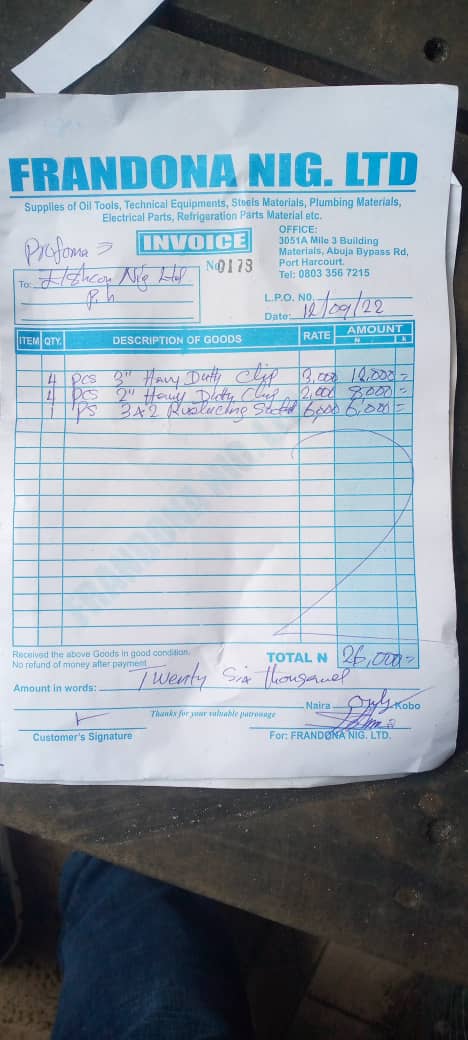 FRANDONA NIG. LTD
Supplies of Oil Tools, Technical Equipments, Steels Materials, Plumbing Materials,
Electrical Parts, Refrigeration Parts Material etc.
Profoma
INVOICE
No 0179
OFFICE:
3051A Mile 3 Building
Materials, Abuja Bypass Rd,
Port Harcourt.
Tel: 0803 356 7215
To: Nig Ltd
P.h
L.P.O. NO.
Date: 12/09/22
ITEM QTY. DESCRIPTION OF GOODS RATE AMOUNT
N K
4 pcs 3" Havy Duty Clip 3,000 12,000=
4 pcs 2" Havy Duty Clip 2,000 8,000=
1 Ps 3x2 6,000 6,000=
FRANDONA NIG. LTD
Received the above Goods in good condition.
No refund of money after payment
TOTAL N 26,000=
Amount in words: Twenty Six thousand
Naira only Kobo
Thanks for your valuable patronage
Customer's Signature
For: FRANDONA NIG. LTD.